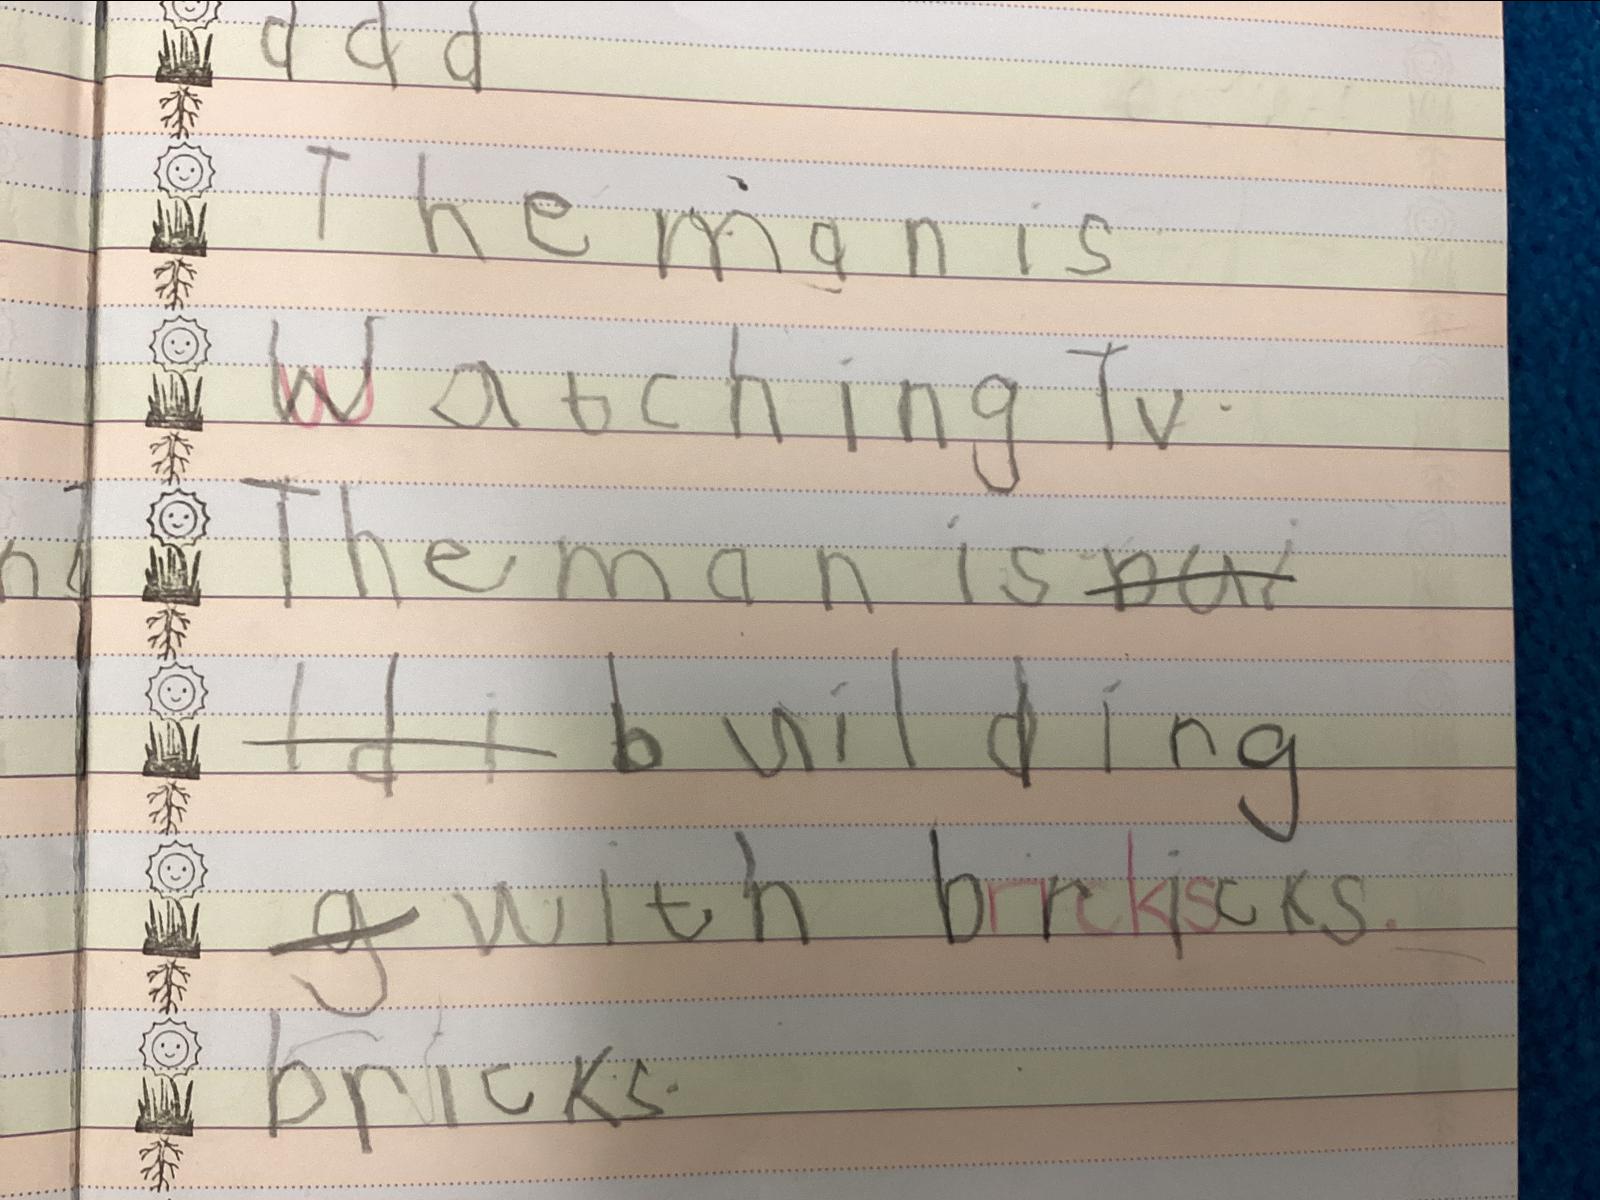 d d d
The man is
Watching Tv.
The man is bui
ldi building
g with bricks.
bricks.